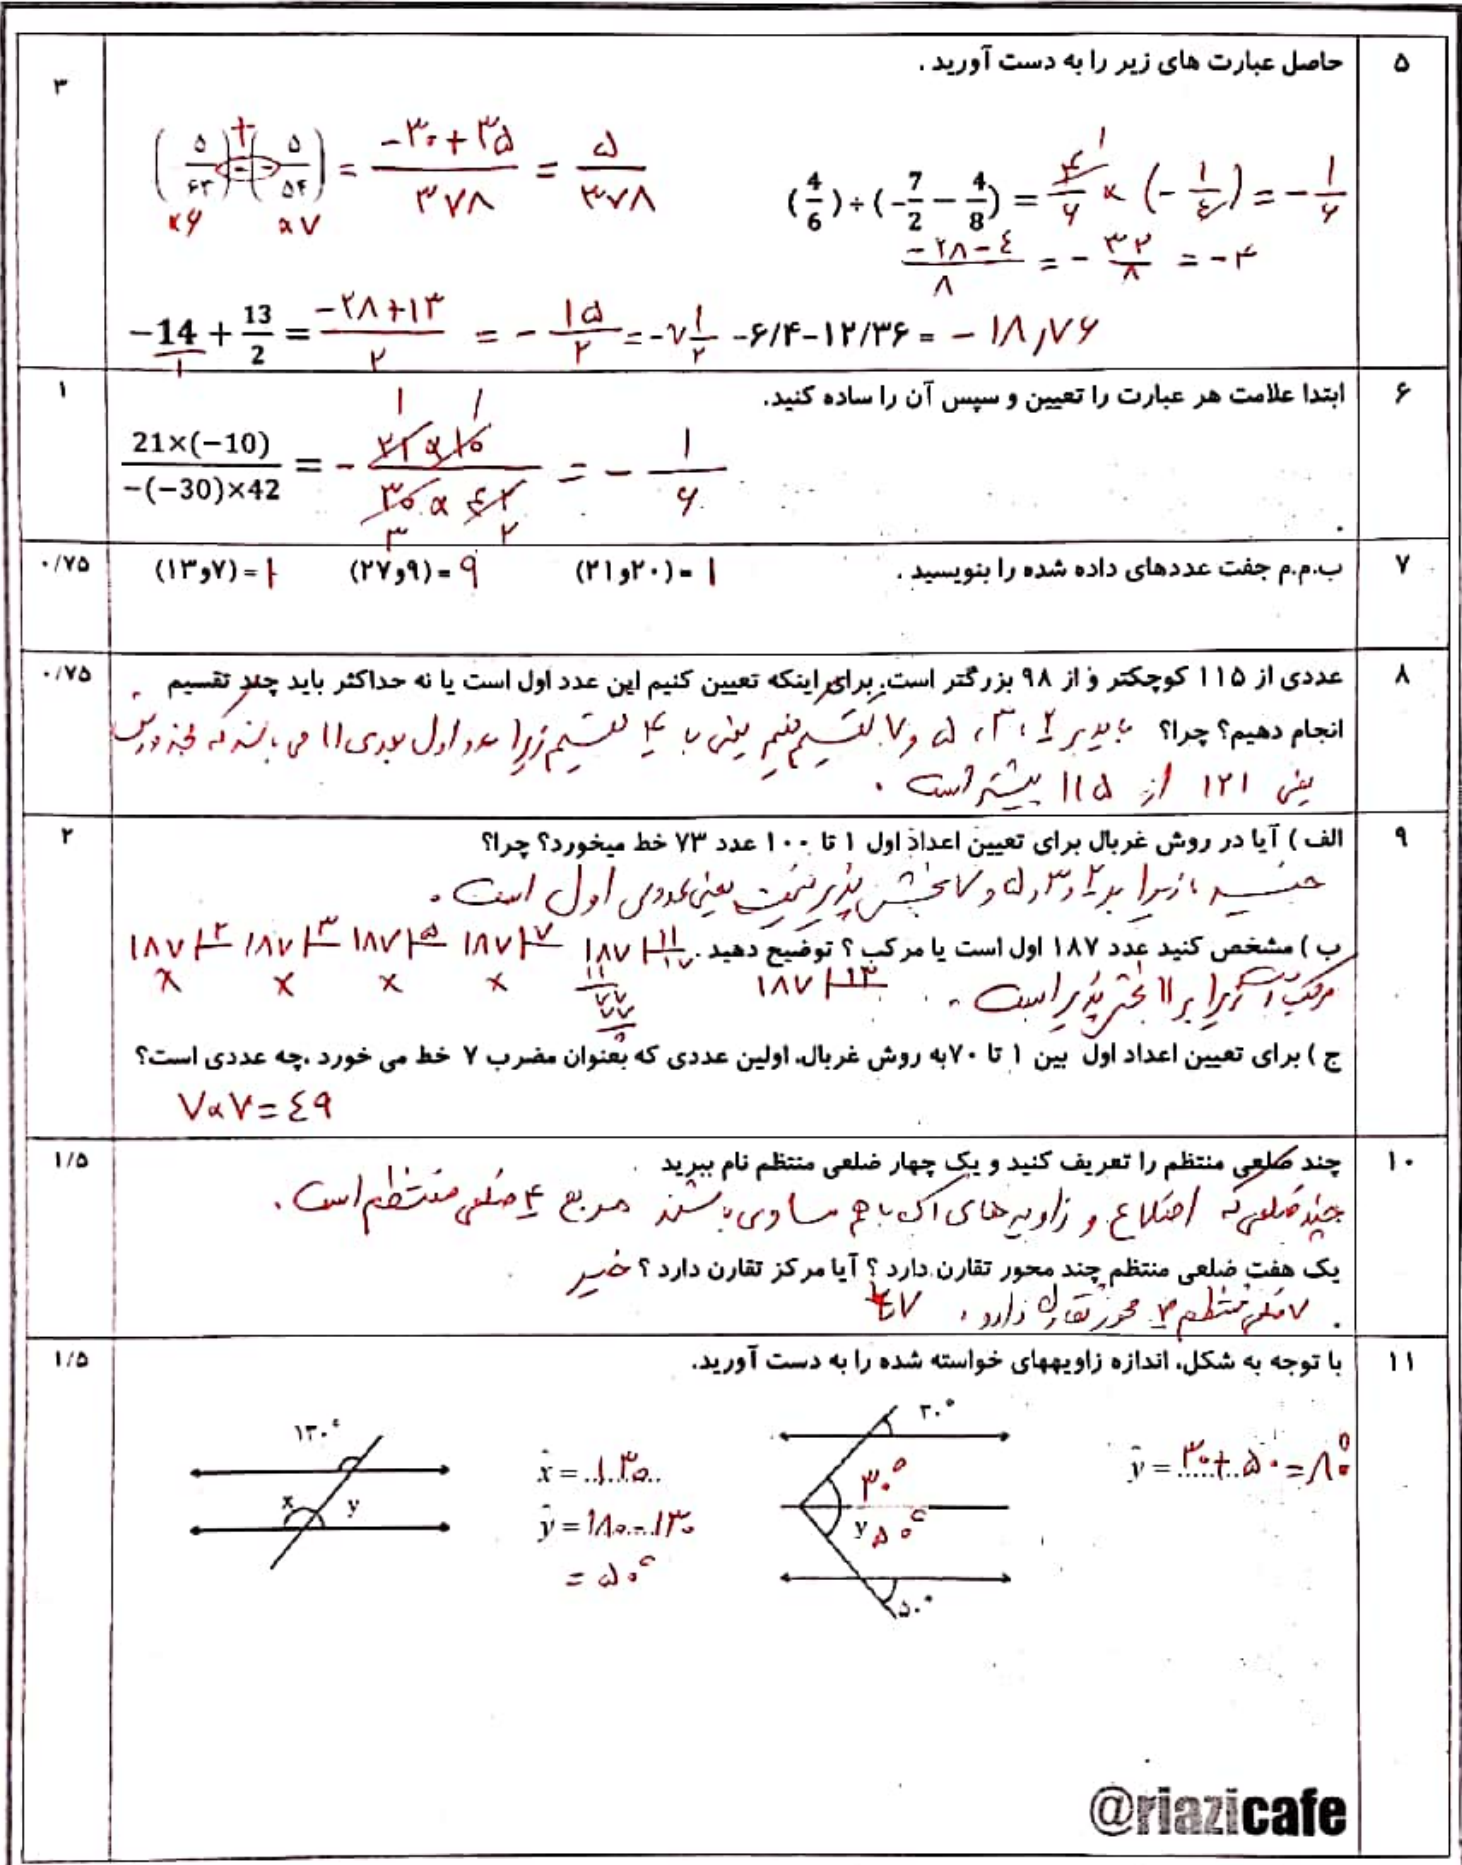 ۵
حاصل عبارت های زیر را به دست آورید .
۳
(4/6) ÷ (-7/2 − 4/8) = ۴/۶ × (- ۱/٤) = - ۱/۶
-۲۸-٤/۸ = - ۳۲/۸ = -۴
(۵/۶۳) - (- ۵/۵۴) = -۳۰+۳۵/۳۷۸ = ۵/۳۷۸
+
×۶ ×۷
-۶/۴-۱۲/۳۶ = - ۱۸,۷۶
-14 + 13/2 = -۲۸+۱۳/۲ = - ۱۵/۲ = -۷ ۱/۲
۱
۶
ابتدا علامت هر عبارت را تعیین و سپس آن را ساده کنید.
۱
21×(−10)/−(−30)×42 = - ۲۱×۱۰/۳۰×٤۲ = - ۱/۶
۱ ۱
۳ ۲
۷
ب.م.م جفت عددهای داده شده را بنویسید .
(۲۱و۲۰) = ۱
(۲۷و۹) = ۹
(۱۳و۷) = ۱
۰/۷۵
۸
عددی از ۱۱۵ کوچکتر و از ۹۸ بزرگتر است. برای اینکه تعیین کنیم این عدد اول است یا نه حداکثر باید چند تقسیم
۰/۷۵
انجام دهیم؟ چرا؟ باید بر ۲ ، ۳ ، ۵ و ۷ تقسیم کنیم یعنی با ۴ تقسیم زیرا عدد اول بعدی ۱۱ می باشد که مجذورش
یعنی ۱۲۱ از ۱۱۵ بیشتر است .
۹
الف ) آیا در روش غربال برای تعیین اعداد اول ۱ تا ۱۰۰ عدد ۷۳ خط میخورد؟ چرا؟
۲
خیر ، زیرا بر ۲ و ۳ و ۵ و ۷ بخش پذیر نیست یعنی عددی اول است .
ب ) مشخص کنید عدد ۱۸۷ اول است یا مرکب ؟ توضیح دهید .
۱۸۷ ۱۱ ۱۷
۱۱
۷۷
۷۷
۰
۱۸۷ ۷ ×
۱۸۷ ۵ ×
۱۸۷ ۳ ×
۱۸۷ ۲ ×
مرکب است زیرا بر ۱۱ بخش پذیر است .
۱۸۷ ۱۳
ج ) برای تعیین اعداد اول بین ۱ تا ۷۰به روش غربال، اولین عددی که بعنوان مضرب ۷ خط می خورد ،چه عددی است؟
۷×۷=٤۹
۱۰
چند ضلعی منتظم را تعریف کنید و یک چهار ضلعی منتظم نام ببرید
۱/۵
چند ضلعی که اضلاع و زاویه های آن با هم مساوی باشند مربع ۴ ضلعی منتظم است .
یک هفت ضلعی منتظم چند محور تقارن دارد ؟ آیا مرکز تقارن دارد ؟ خیر
۷ ضلعی منتظم ۷ محور تقارن دارد .
۱۱
با توجه به شکل، اندازه زاویههای خواسته شده را به دست آورید.
۱/۵
ŷ = ۳۰+۵۰ = ۸۰°
۳۰°
۳۰°
y ۵۰°
۵۰°
x̂ = ۱۳۰
ŷ = ۱۸۰-۱۳۰
= ۵۰°
۱۳۰°
x y
@riazicafe